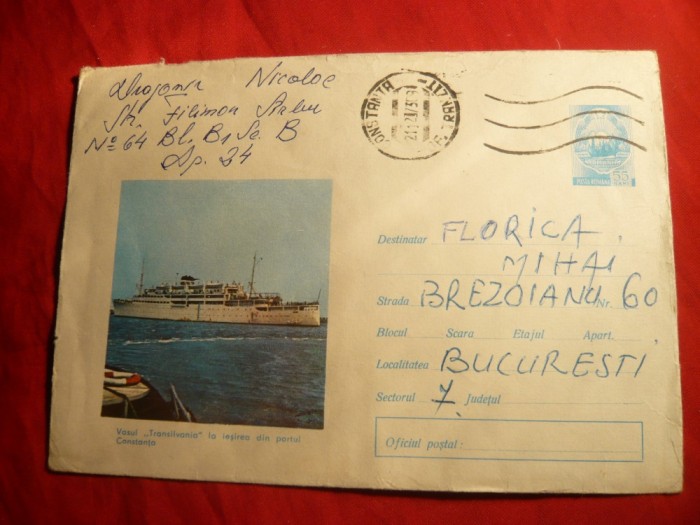 Nicolae
Str. Filimon Sarbu
No 64 Bl. B1 Sc. B
Ap. 34
CONSTANTA
POSTA ROMANA
55
Destinatar FLORICA
MIHAI
Strada BREZOIANU Nr. 60
Blocul Scara Etajul Apart.
Localitatea BUCURESTI
Sectorul 7 Județul
Oficiul poștal:
Vasul „Transilvania" la ieșirea din portul
Constanța